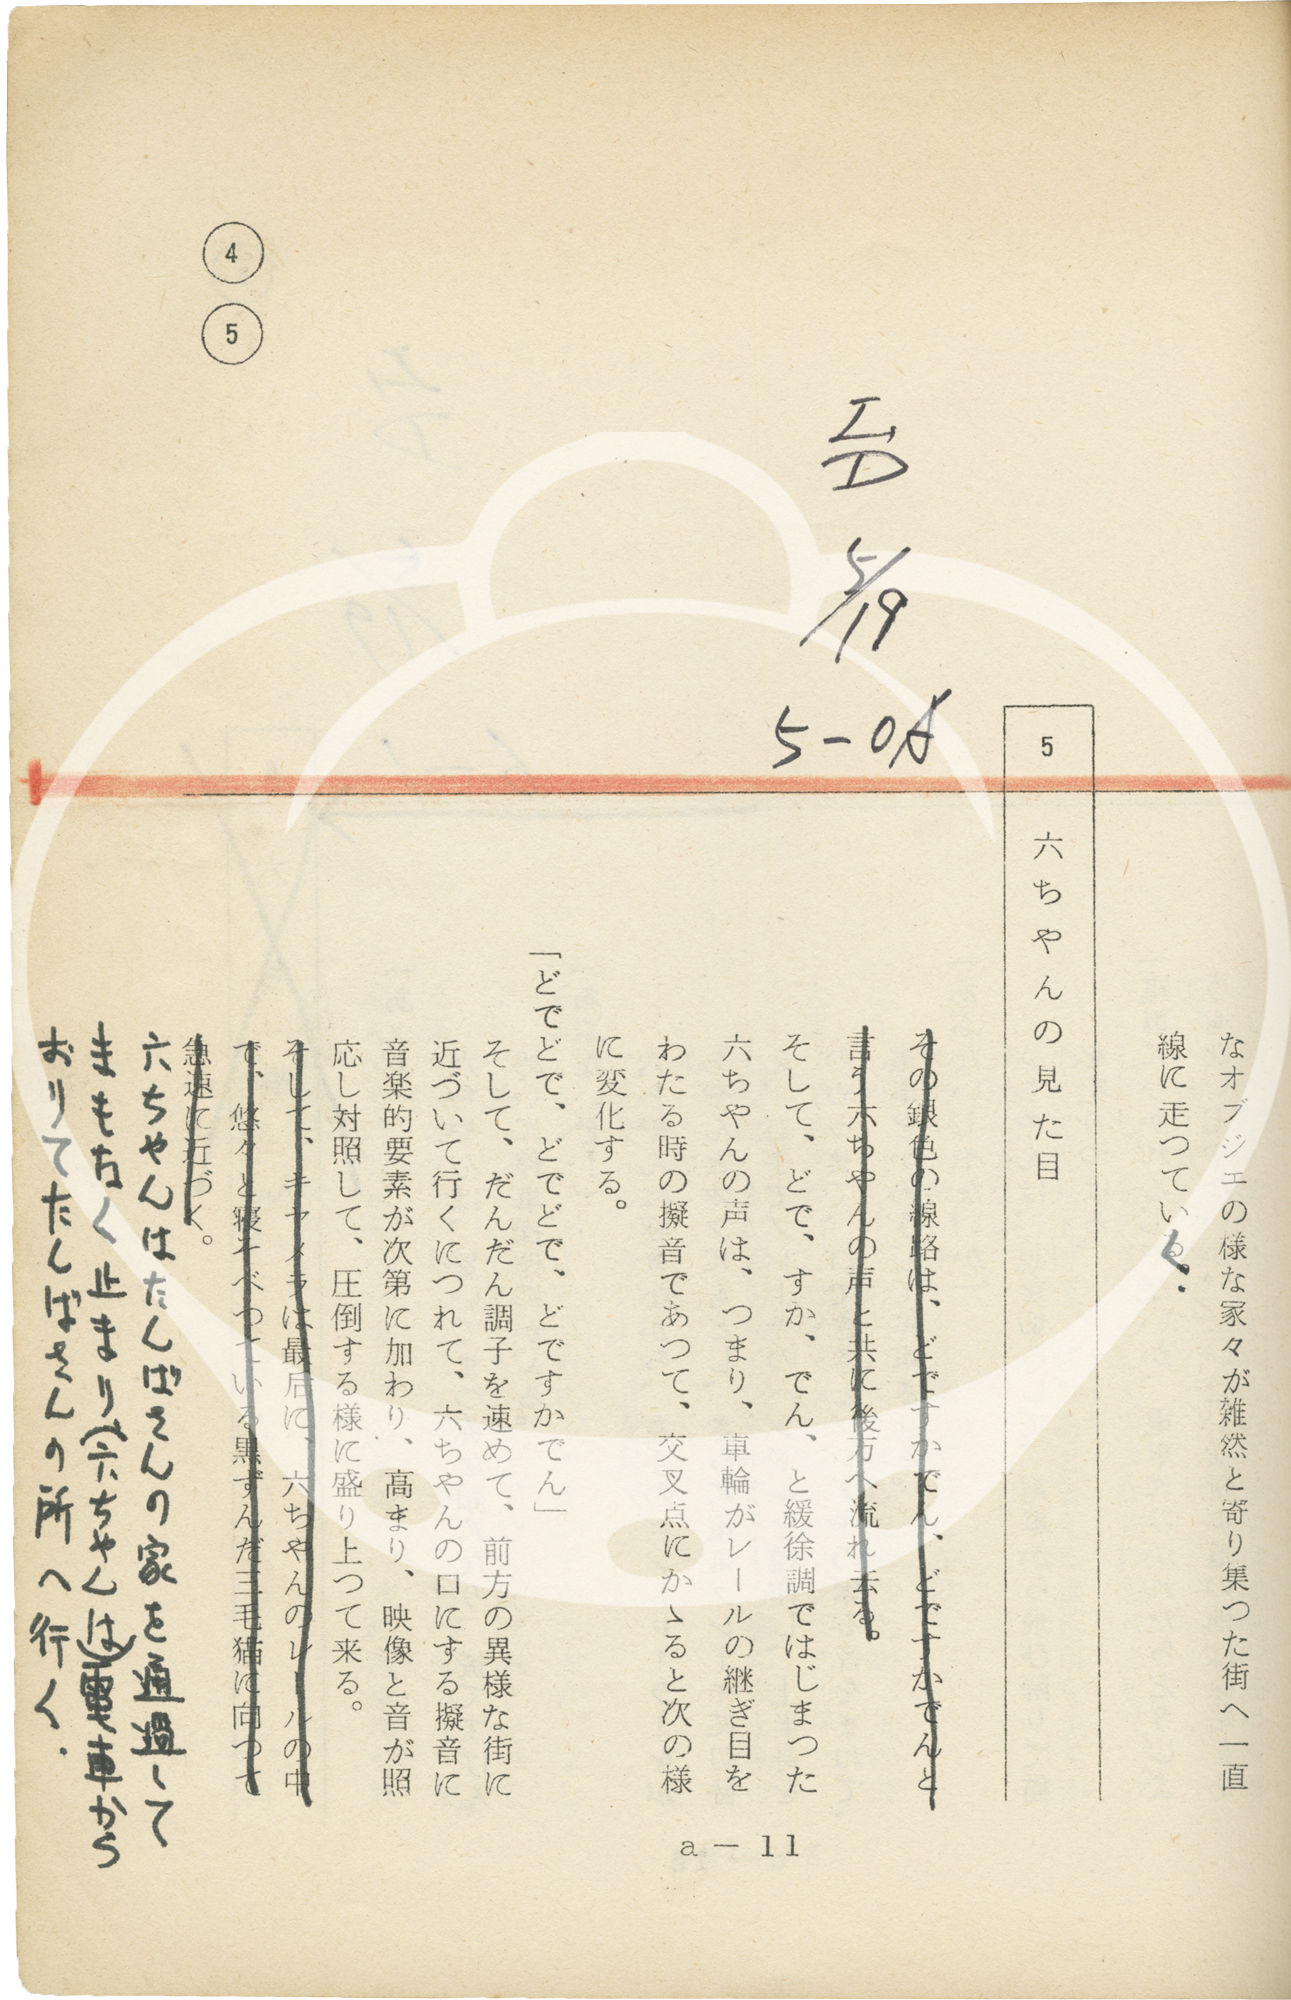 なオブジエの様な家々が雑然と寄り集つた街へ一直
線に走つている。
5 六ちやんの見た目
5/19
その銀色の線路は、どですかでん、どですかでんと
言う六ちやんの声と共に後方へ流れ去る。
そして、どで、すか、でん、と緩徐調ではじまつた
六ちやんの声は、つまり、車輪がレールの継ぎ目を
わたる時の擬音であつて、交叉点にかゝると次の様
に変化する。
「どでどで、どでどで、どですかでん」
そして、だんだん調子を速めて、前方の異様な街に
近づいて行くにつれて、六ちやんの口にする擬音に
音楽的要素が次第に加わり、高まり、映像と音が照
応し対照して、圧倒する様に盛り上つて来る。
そして、キヤメラは最后に、六ちやんのレールの中
で、悠々と寝そべつている黒ずんだ三毛猫に向つて
急速に近づく。
④
⑤
六ちゃんはたんばさんの家を通過して
まもなく止まり(六ちゃんは)電車から
おりてたんばさんの所へ行く.
a－11